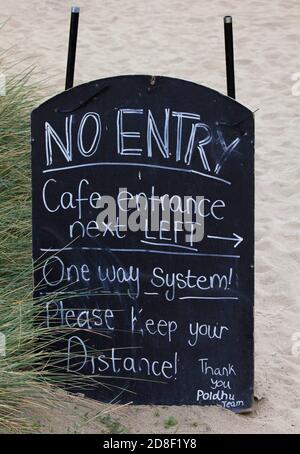 NO ENTRY
Cafe entrance
next LEFT →
One way system!
Please keep your
Distance!
Thank
you
Poldhu
Team
alamy
2D8F1Y8